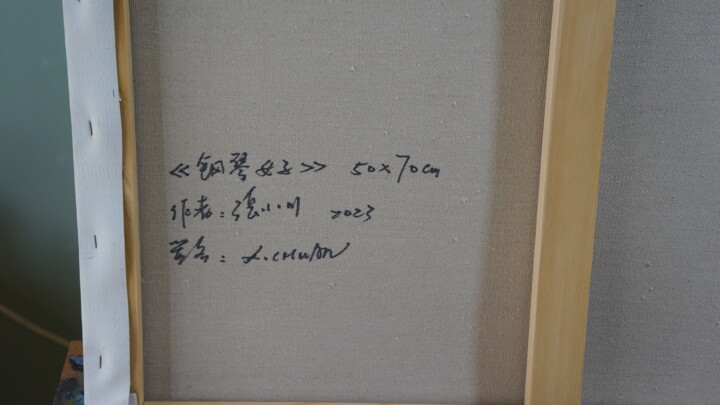 <<钢琴女子>> 50×70cm
作者：張小川 2023
签名：X.CHUAN